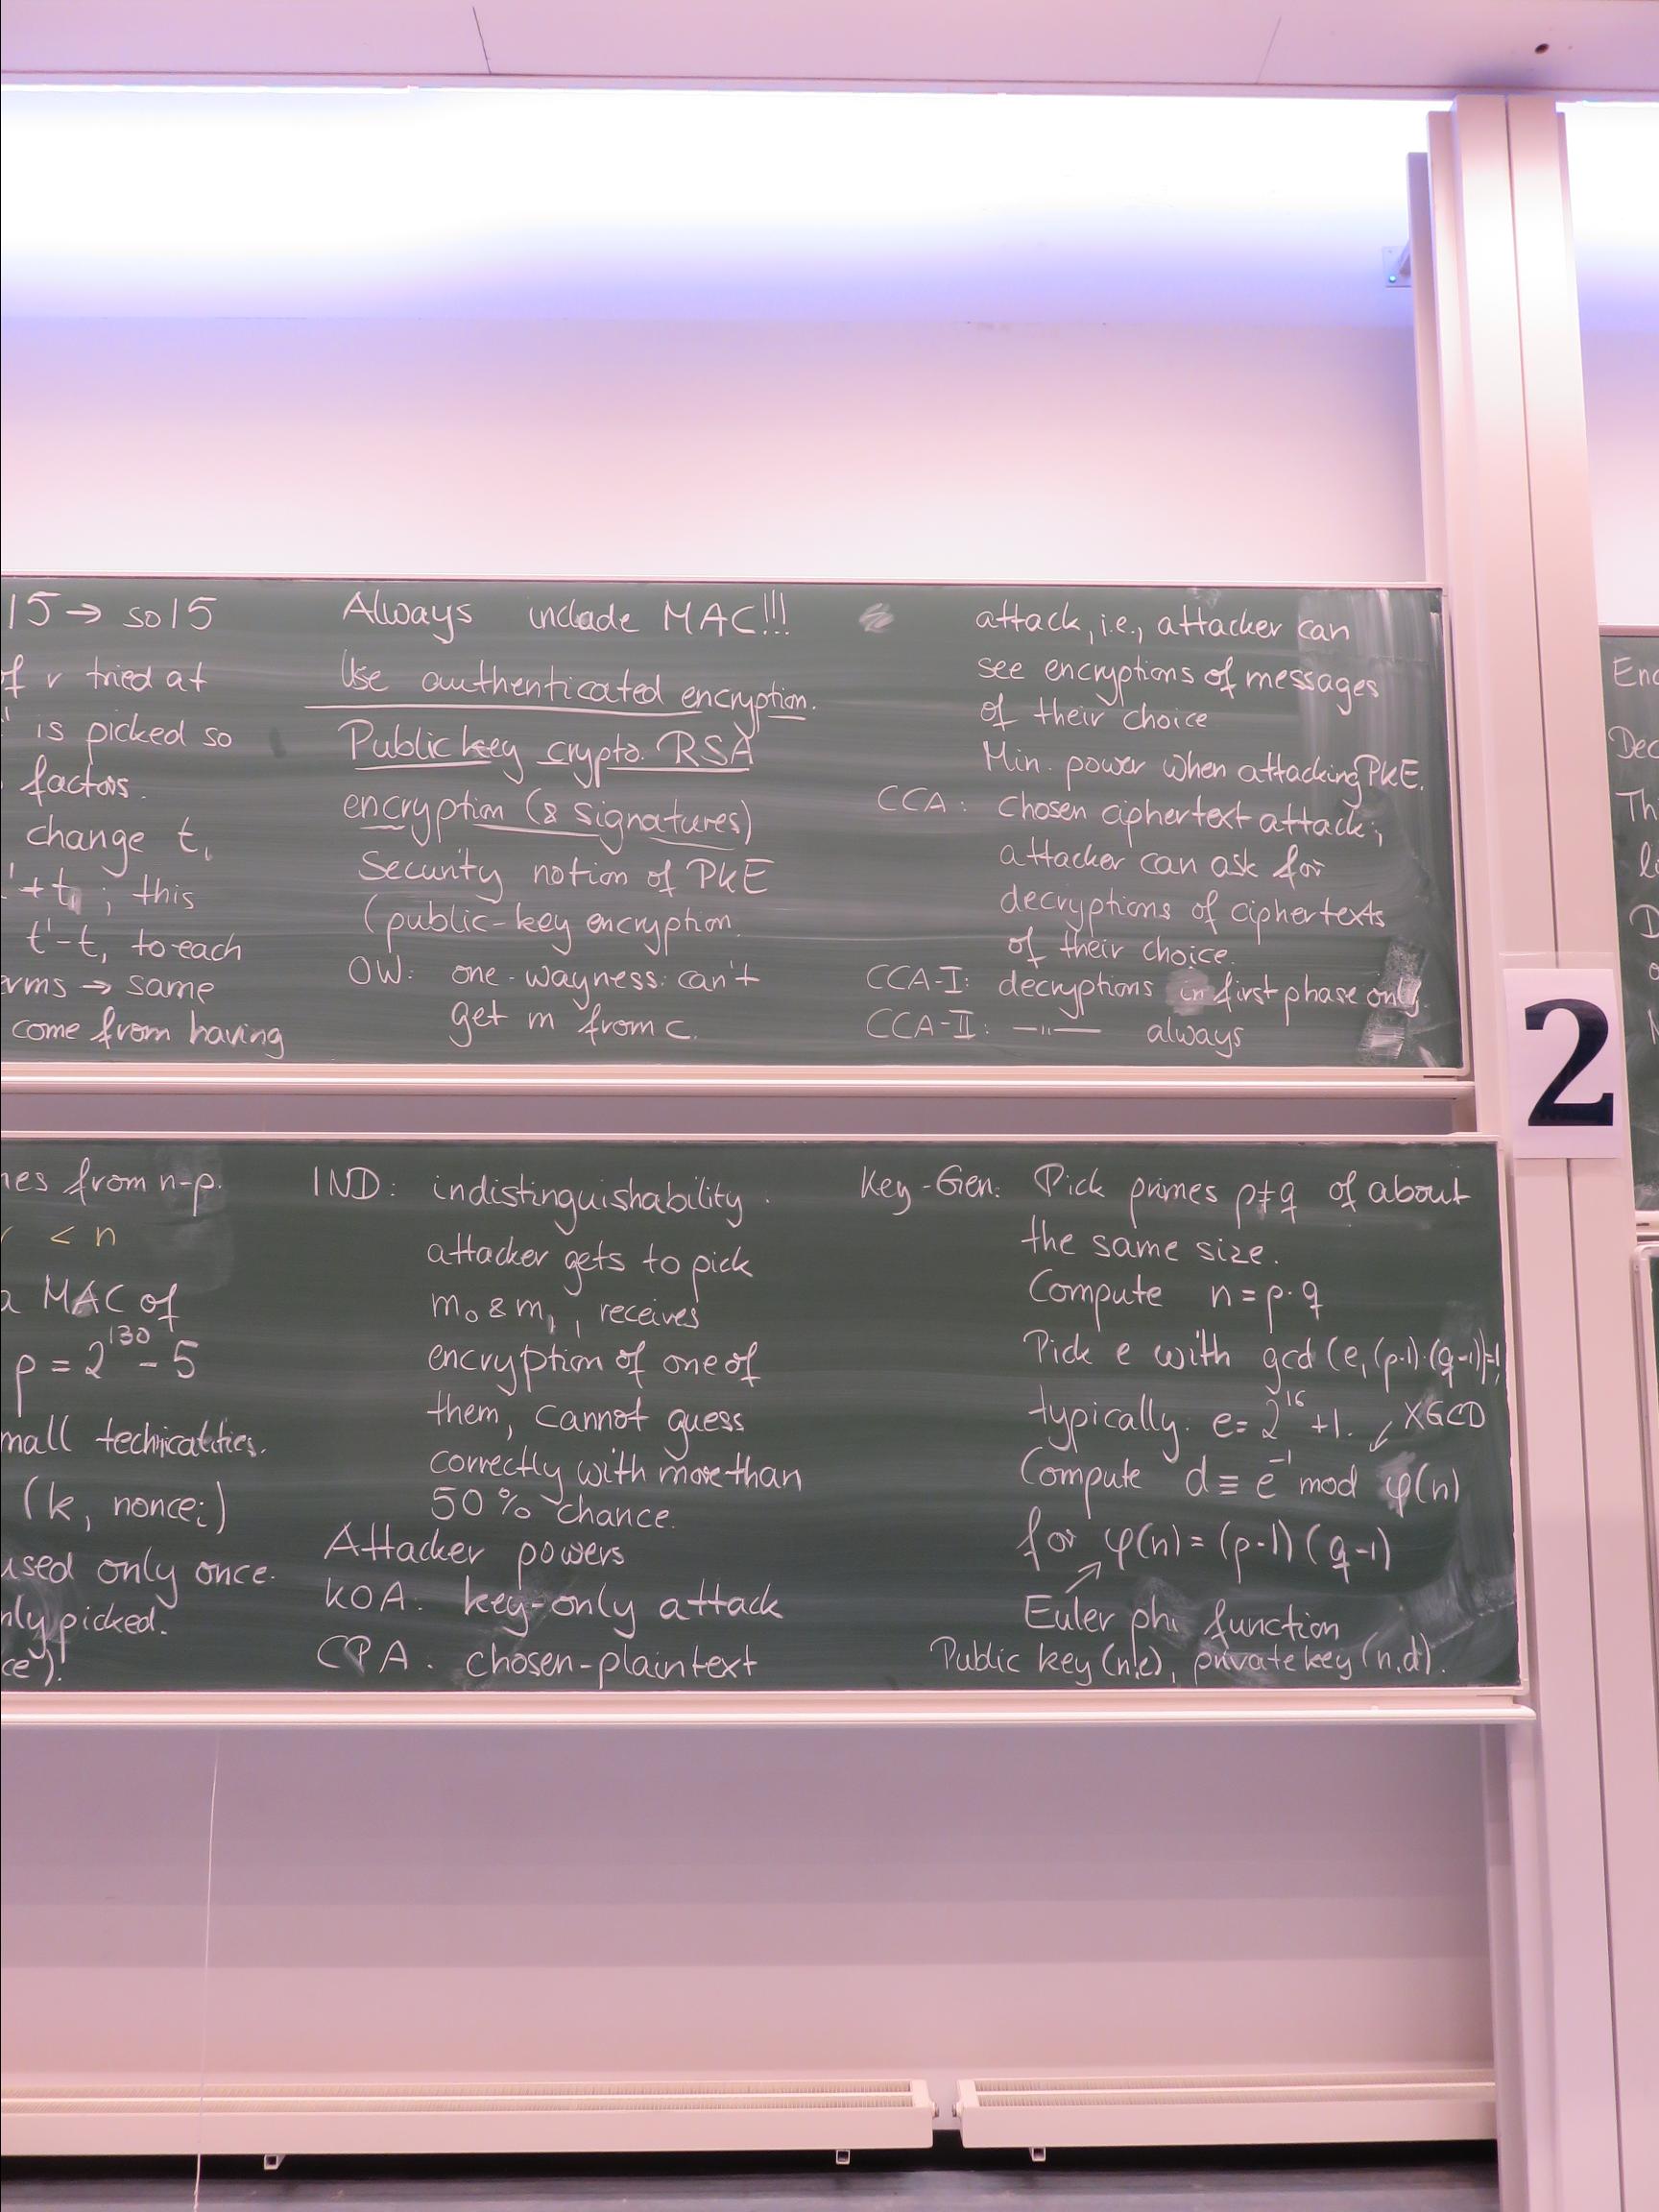 15 → so 15
of r tried at
is picked so
factors.
change t,
'+t₁; this
t'-t, to each
same
come from having
Always include MAC!!!
Use authenticated encryption.
Public key crypto. RSA
encryption (& signatures)
Security notion of PKE
(public-key encryption.
OW: one-wayness: can't
get m from c.
attack, i.e., attacker can
see encryptions of messages
of their choice
Min. power when attacking PKE.
CCA: chosen ciphertext attack;
attacker can ask for
decryptions of ciphertexts
of their choice.
CCA-I: decryptions in first phase only.
CCA-II: —"— always
from n-p.
< n
a MAC of
p = 2^130 - 5
technicalities.
(k, nonce_i)
used only once.
picked.
IND: indistinguishability.
attacker gets to pick
m₀ & m₁, receives
encryption of one of
them, cannot guess
correctly with more than
50% chance.
Attacker powers
KOA: key-only attack
CPA: chosen-plaintext
Key-Gen: Pick primes p≠q of about
the same size.
Compute n = p·q
Pick e with gcd(e,(p-1)·(q-1))=1,
typically. e = 2^16 + 1. ↙ XGCD
Compute d ≡ e^-1 mod φ(n)
for φ(n) = (p-1)(q-1)
Euler phi function
Public key (n,e), private key (n,d).
2